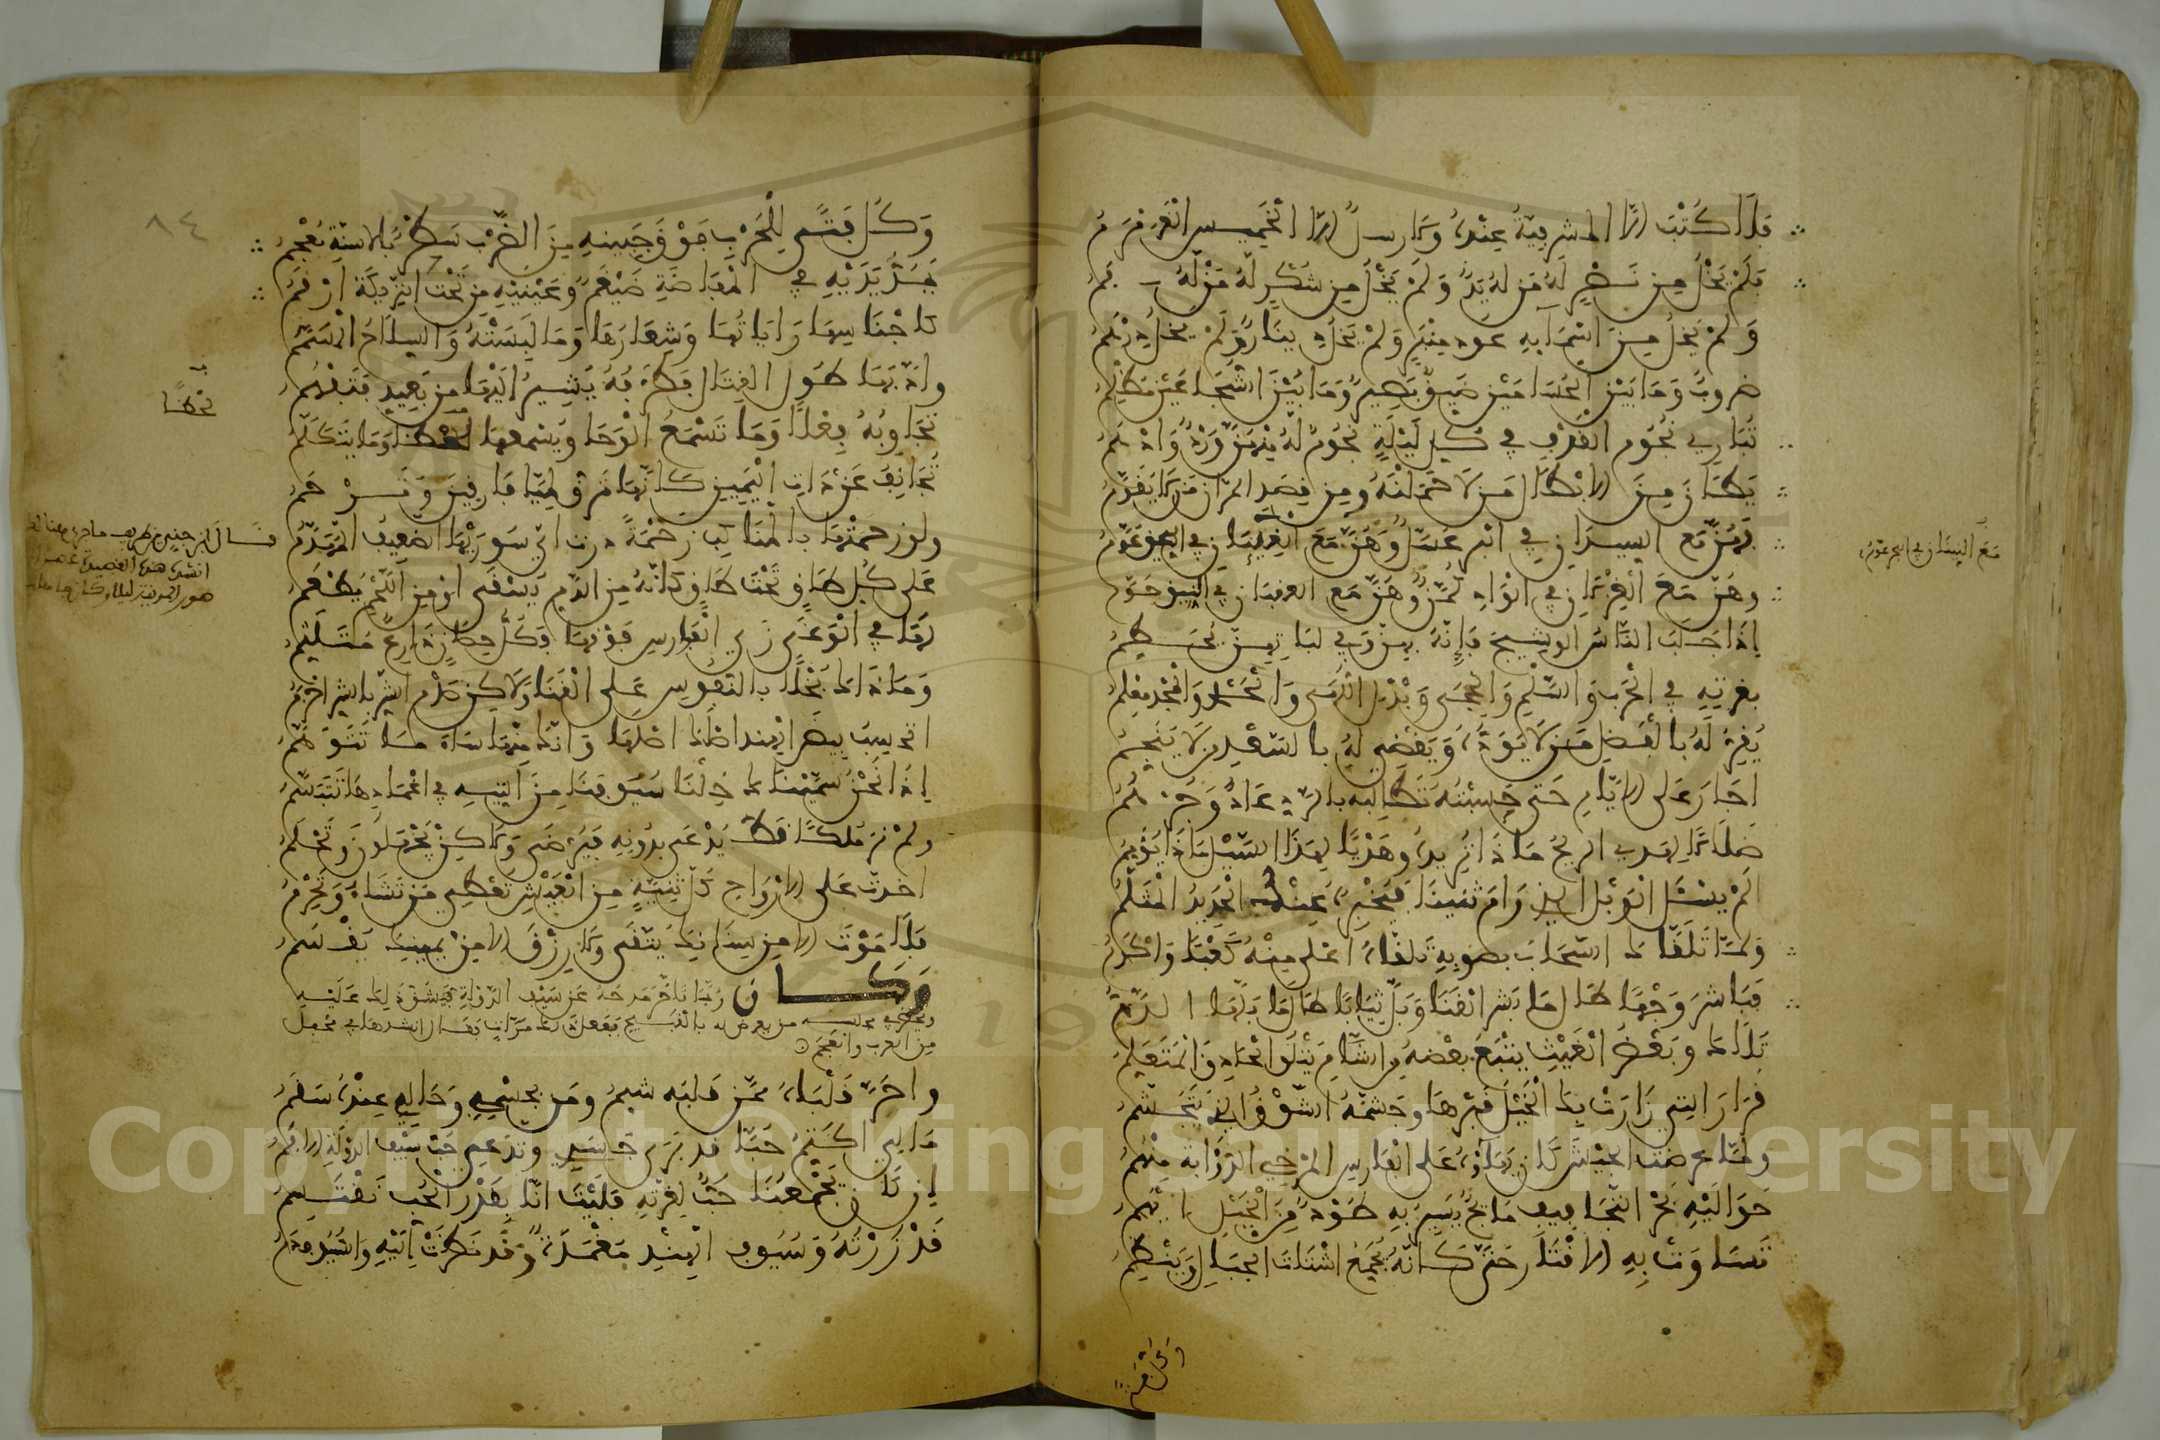 فلا كتب إلا المشرفية عنده ولا رسل إلا الخميس العرمرم
فلم يخل من نصر له من له يد ولم يخل من شكر له من له فم
ولم يخل من أسمائه عود منبر ولم يخل دينار ولم يخل درهم
ضروب وما بين الحسامين ضيق بصير وما بين الشجاعين مظلم
تباري نجوم القذف في كل ليلة نجوم له منهن ورد وأدهم
يطأن من الأبطال من لا حملنه ومن قصد المران ما لا يقوم
فهن مع السيدان في البر عسل وهن مع النينان في البحر عوم
وهن مع الغزلان في الواد كمن وهن مع العقبان في النيق حوم
إذا جلب الناس الوشيج فإنه بهن وفي لباتهن يحطم
بغرته في الحرب والسلم والحجى وبذل اللهى والحمد والمجد معلم
يقر له بالفضل من لا يوده ويقضي له بالسعد من لا ينجم
أجار على الأيام حتى حسبته تطالبه بالرد عاد وجرهم
ضلالا لهذي الريح ماذا تريده وهديا لهذا السيل ماذا يؤمم
ألم يسئل الوبل الذي رام ثنينا فيخبره عنك الحديد المثلم
ولما تلقاك السحاب بصوبه تلقاه أعلى منه كعبا وأكرم
فباشر وجها طالما باشر القنا وبل ثيابا طالما بلها الدم
تلاك وبعض الغيث يتبع بعضه من الشأم يتلو الحاذق المتعلم
فزار التي زارت بك الخيل قبرها وجشمه الشوق الذي تتجشم
ولما عرضت الجيش كان بهاؤه على الفارس المرخى الذؤابة منهم
حواليه بحر للتجافيف مائج يسير به طود من الخيل أيهم
تساوت به الأقتار حتى كأنه يجمع أشتات الجبال وينظم
وكل فتى
مع النينان في البحر عوم
وكل فتى للحرب فوق جبينه من الضرب سطر بالأسنة معجم
يمد يديه في المفاضة ضيغم وعينيه من تحت التريكة أرقم
كأجناسها راياتها وشعارها وما لبسته والسلاح المسمم
وأدبها طول القتال فطرفه يشير إليها من بعيد فتفهم
تجاوبه فعلا وما تسمع الوحا ويسمعها لحظا وما يتكلم
تجانف عن ذات اليمين كأنها ترق لميافارقين وترحم
ولو زحمتها بالمناكب زحمة درت أي سورينا الضعيف المهدم
على كل طاو تحت طاو كأنه من الدم يسقى أو من اللحم يطعم
لها في الوغى زي الفوارس فوقها فكل حصان دارع متلثم
وما ذاك بخلا بالنفوس على القنا ولكن صدم الشر بالشر أحزم
أتحسب بيض الهند أصلك أصلها وأنك منها ساء ما تتوهم
إذا نحن سميناك خلنا سيوفنا من التيه في أغمادها تتبسم
ولم نر ملكا قط يدعى بدونه فيرضى ولكن يجهلون وتحلم
أخذت على الأرواح كل ثنية من العيش تعطي من تشاء وتحرم
فلا موت إلا من سنانك يتقى ولا رزق إلا من يمينك يقسم
وكان ربما تأخر مدحه عن سيف الدولة فيشق ذلك عليه
مرات فقال أنشدها في محفل
من العرب والعجم
واحر قلباه ممن قلبه شبم ومن بجسمي وحالي عنده سقم
مالي أكتم حبا قد برى جسدي وتدعي حب سيف الدولة الأمم
إن كان يجمعنا حب لغرته فليت أنا بقدر الحب نقتسم
قد زرته وسيوف الهند مغمدة وقد نظرت إليه والسيوف دم
لحظا
٨٤